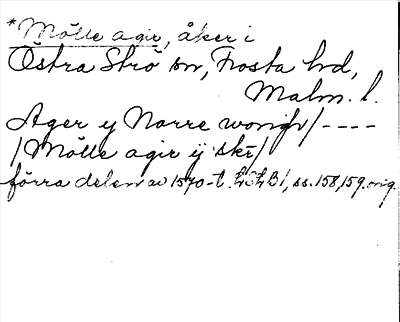 *Mölle agir, åker i
Östra Strö sn, Frosta hd,
Malm. l.
Ager y Norre wongh/----
/Mölle agir ÿ skt/
förra delen av 1570-t. LChB1, ss.158,159. orig.